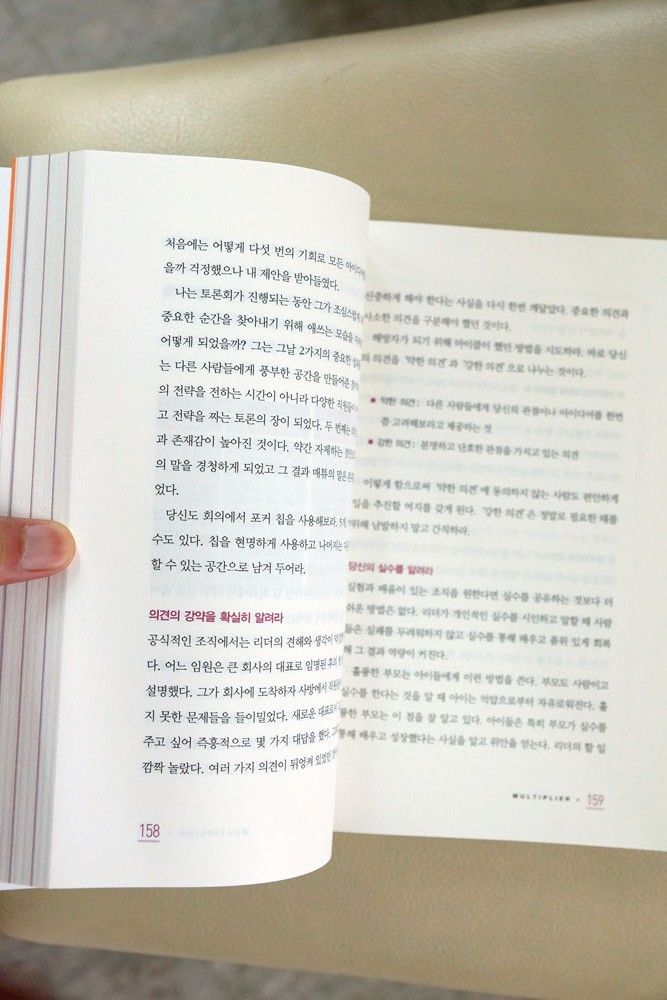 처음에는 어떻게 다섯 번의 기회로 모든
을까 걱정했으나 내 제안을 받아들였다.
나는 토론회가 진행되는 동안 그가 조심스럽게
중요한 순간을 찾아내기 위해 애쓰는 모습을
어떻게 되었을까? 그는 그날 2가지의 중요한
는 다른 사람들에게 풍부한 공간을 만들어준
의 전략을 전하는 시간이 아니라 다양한 직원들이
고 전략을 짜는 토론의 장이 되었다. 두 번째는
과 존재감이 높아진 것이다. 약간 자제하는
의 말을 경청하게 되었고 그 결과 매튜의 말은
었다.
당신도 회의에서 포커 칩을 사용해보라.
수도 있다. 칩을 현명하게 사용하고 나머지는
할 수 있는 공간으로 남겨 두어라.
의견의 강약을 확실히 알려라
공식적인 조직에서는 리더의 견해와 생각이
다. 어느 임원은 큰 회사의 대표로 임명된 후의
설명했다. 그가 회사에 도착하자 사방에서
지 못한 문제들을 들이밀었다. 새로운 대표로
주고 싶어 즉흥적으로 몇 가지 대답을 했다.
깜짝 놀랐다. 여러 가지 의견이 뒤엉켜 있었던
158
신중하게 해야 한다는 사실을 다시 한번 깨달았다. 중요한 의견과
사소한 의견을 구분해야 했던 것이다.
해방자가 되기 위해 마이클이 했던 방법을 시도하라. 바로 당신
의 의견을 '약한 의견'과 '강한 의견'으로 나누는 것이다.
■ 약한 의견 : 다른 사람들에게 당신의 관점이나 아이디어를 한번
쯤 고려해보라고 제공하는 것
■ 강한 의견 : 분명하고 단호한 관점을 가지고 있는 의견
이렇게 함으로써 '약한 의견'에 동의하지 않는 사람도 편안하게
일을 추진할 여지를 갖게 된다. '강한 의견'은 정말로 필요한 때를
위해 남발하지 말고 간직하라.
당신의 실수를 알려라
실험과 배움이 있는 조직을 원한다면 실수를 공유하는 것보다 더
쉬운 방법은 없다. 리더가 개인적인 실수를 시인하고 말할 때 사람
들은 실패를 두려워하지 않고 실수를 통해 배우고 품위 있게 회복
해 그 결과 역량이 커진다.
훌륭한 부모는 아이들에게 이런 방법을 쓴다. 부모도 사람이고
실수를 한다는 것을 알 때 아이는 억압으로부터 자유로워진다. 훌
륭한 부모는 이 점을 잘 알고 있다. 아이들은 특히 부모가 실수를
통해 배우고 성장했다는 사실을 알고 위안을 얻는다. 리더의 할 일
MULTIPLIER • 159